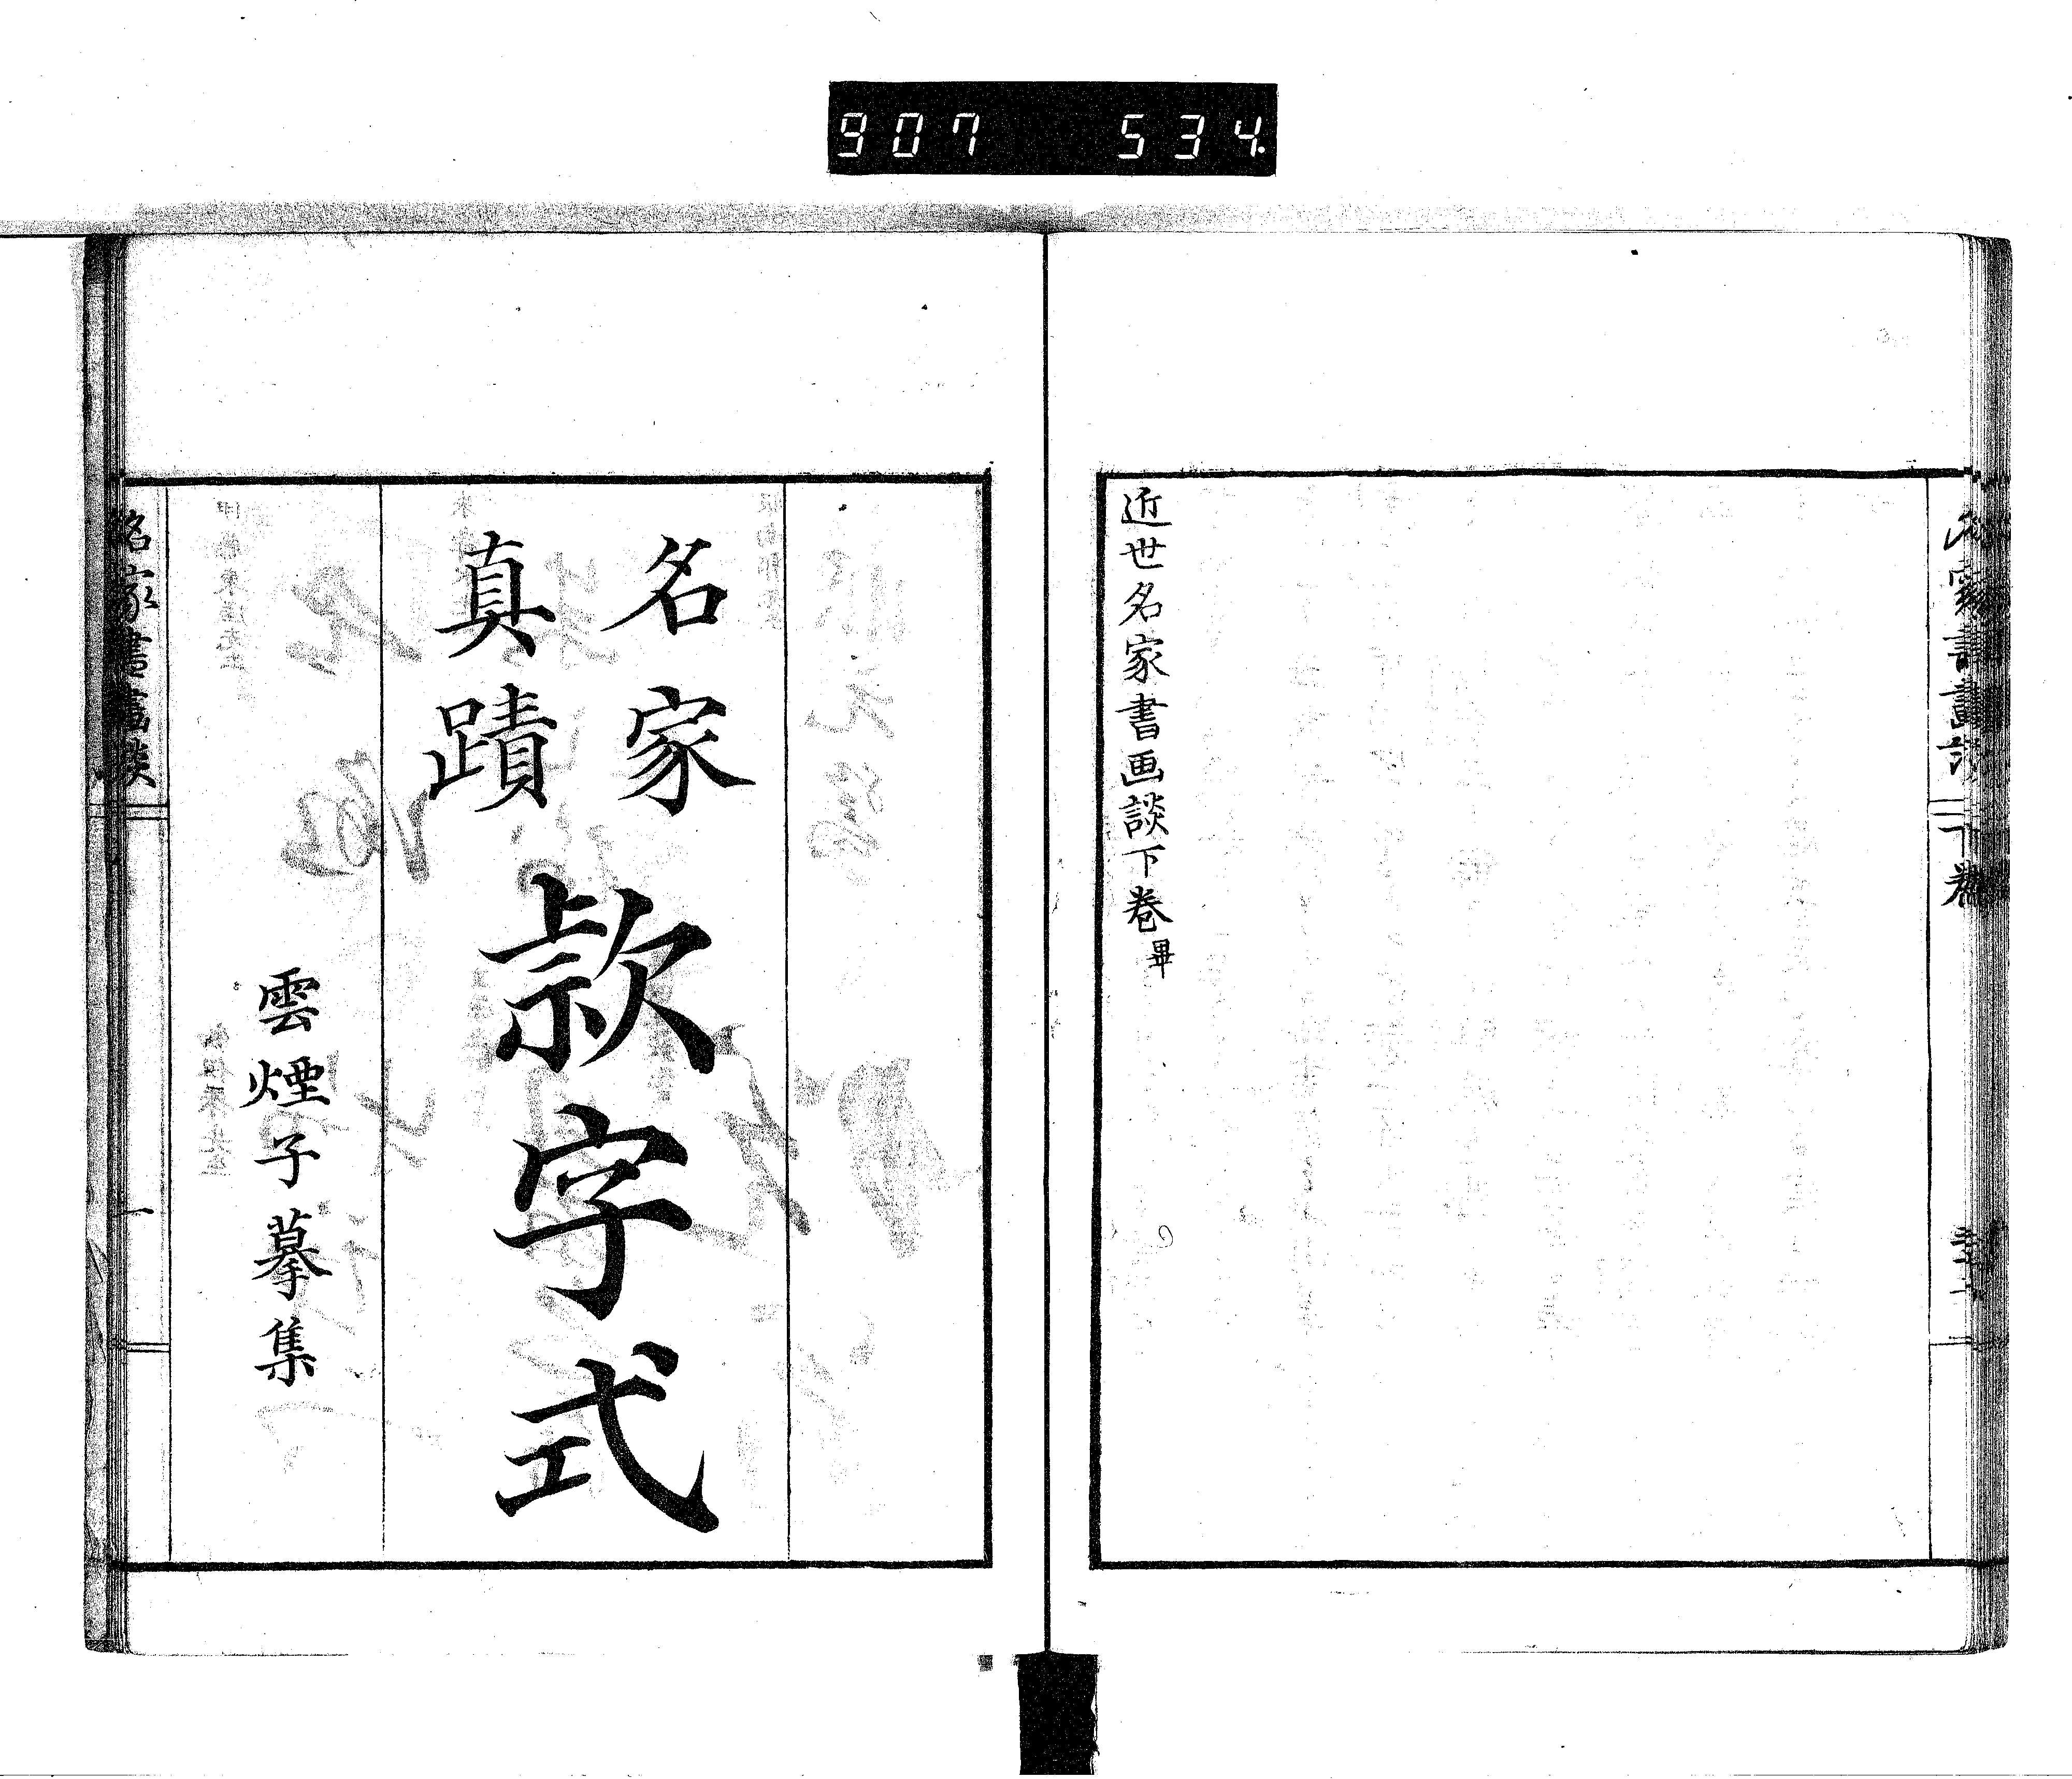 907 534.
名家書畫談
下卷
近世名家書画談下卷畢
名家
真蹟
款字式
雲煙子摹集
名家書畫談
一